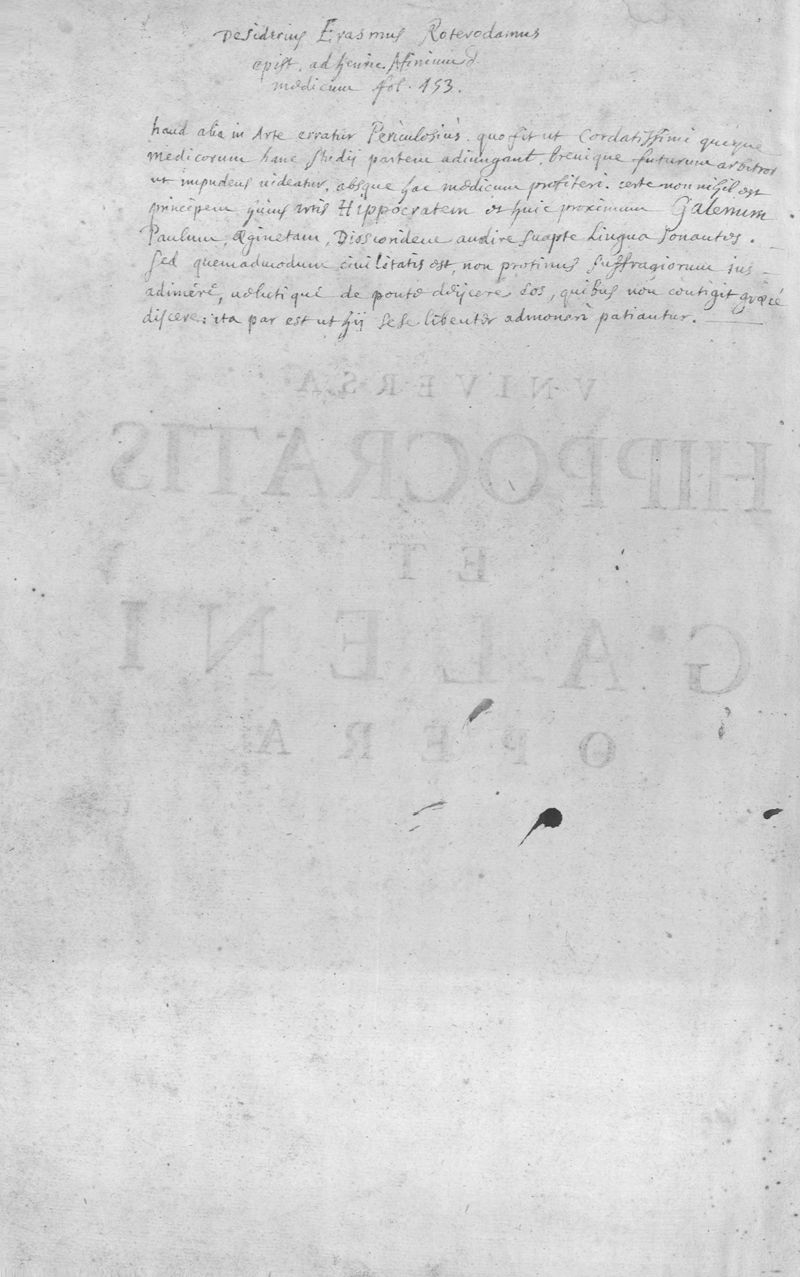 Desiderius Erasmus Roterodamus
epist. ad henric. Afinium
medicum fol. 153.
haud alia in Arte erratur Periculosius. quo fit ut Cordatissimi quique
medicorum hanc studij partem adiungant. brevique futurum arbitror
ut impudens uideatur, absque hac medicum profiteri. certe non nihil est
principem huius artis Hippocratem et huic proximum Galenum
Paulum, Æginetam, Dioscoridem audire suapte Lingua sonantes.
sed quemadmodum civilitatis est, non protinus suffragiorum ius
adimere, uelutique de ponte deijcere eos, quibus non contigit græcè
discere: ita par est ut hij sese libenter admoneri patiantur.
VNIVERSA
HIPPOCRATIS
ET
GALENI
OPERA